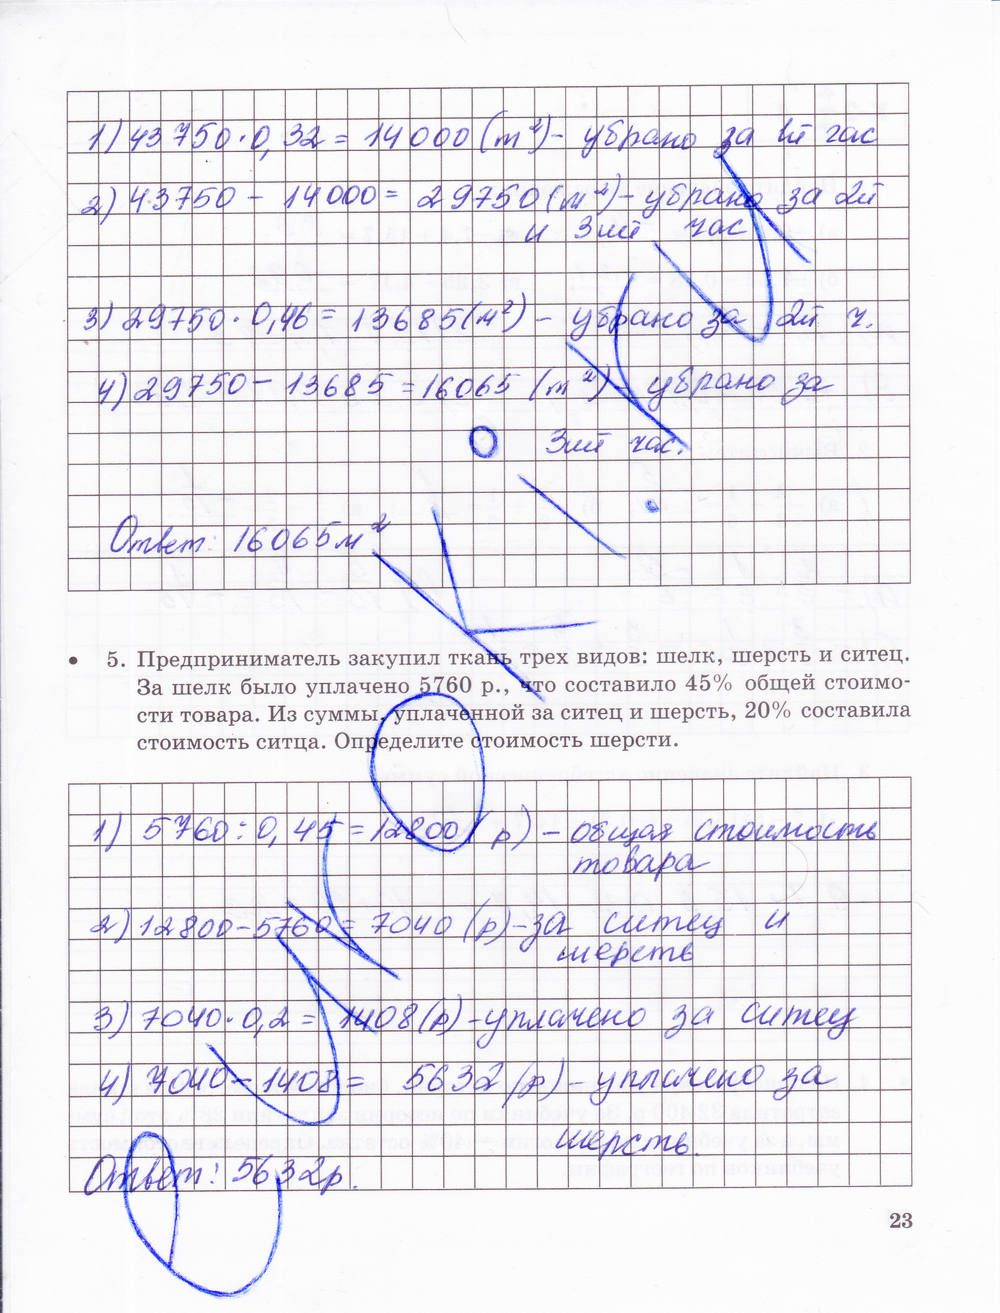 1) 43750·0,32 = 14000 (m²) - убрано за 1й час
2) 43750 - 14000 = 29750 (m²) - убрано за 2й
и 3ий час
3) 29750·0,46 = 13685 (м²) - убрано за 2й ч.
4) 29750 - 13685 = 16065 (m²) - убрано за
3ий час.
Ответ: 16065м²
• 5. Предприниматель закупил ткань трех видов: шелк, шерсть и ситец.
За шелк было уплачено 5760 р., что составило 45% общей стоимо-
сти товара. Из суммы, уплаченной за ситец и шерсть, 20% составила
стоимость ситца. Определите стоимость шерсти.
1) 5760 : 0,45 = 12800 (р) - общая стоимость
товара
2) 12800 - 5760 = 7040 (р) - за ситец и
шерсть
3) 7040·0,2 = 1408 (р) - уплачено за ситец
4) 7040 - 1408 = 5632 (р) - уплачено за
шерсть.
Ответ: 5632р.
23